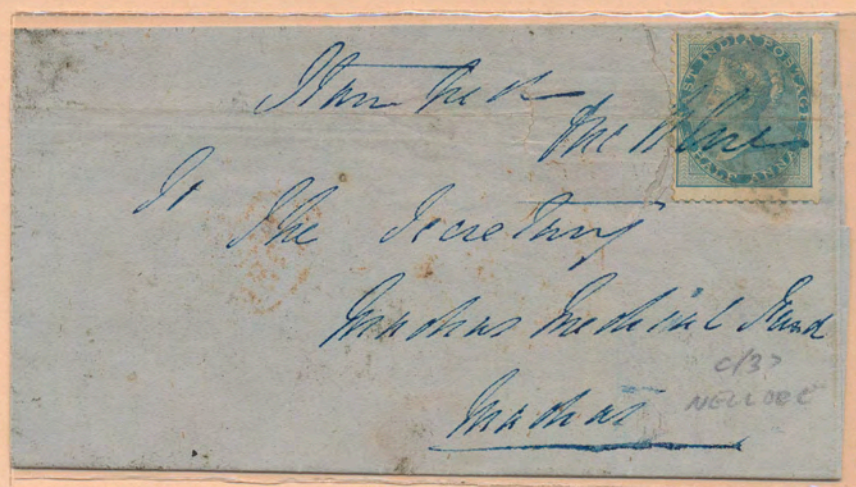 EAST INDIA POSTAGE
HALF ANNA
Stamped
One Blue
To
The Secretary
Madras Medical Fund
Madras
C/37
NELLORE